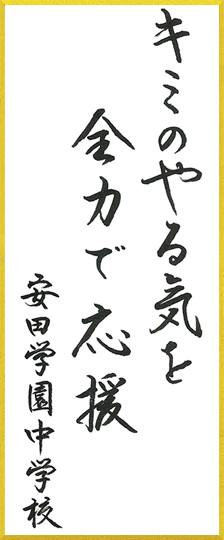 キミのやる気を
全力で応援
安田学園中学校